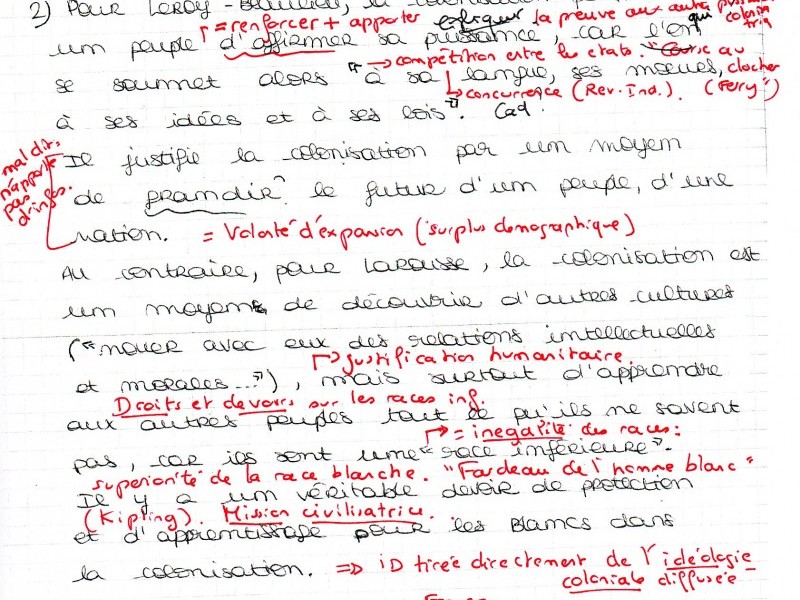 2) Pour Leroy-Beaulieu, la colonisation
= renforcer + apporter la preuve aux autres
un peuple d'affirmer sa puissance, car l'on qui
→ compétition entre les états au
se soumet alors "à sa langue, ses mœurs, clocher
↳ concurrence (Rev. Ind.). (Ferry")
à ses idées et à ses lois". Cad
Il justifie la colonisation par un moyen
mal dit,
n'apporte
pas
d'infos.
de grandir le futur d'un peuple, d'une
nation. = Volonté d'expansion (surplus démographique)
Au contraire, pour Larousse, la colonisation est
un moyen de découvrir d'autres cultures
("nouer avec eux des relations intellectuelles
↱ justification humanitaire.
et morales..."), mais surtout d'apprendre
Droits et devoirs sur les races inf.
aux autres peuples tout ce qu'ils ne savent
↱ = inégalité des races :
pas, car ils sont une "race inférieure".
supériorité de la race blanche. "Fardeau de l'homme blanc"
Il y a un véritable devoir de protection
(Kipling). Mission civilisatrice.
et d'apprentissage pour les Blancs dans
la colonisation. => iD tirée directement de l'idéologie
coloniale diffusée